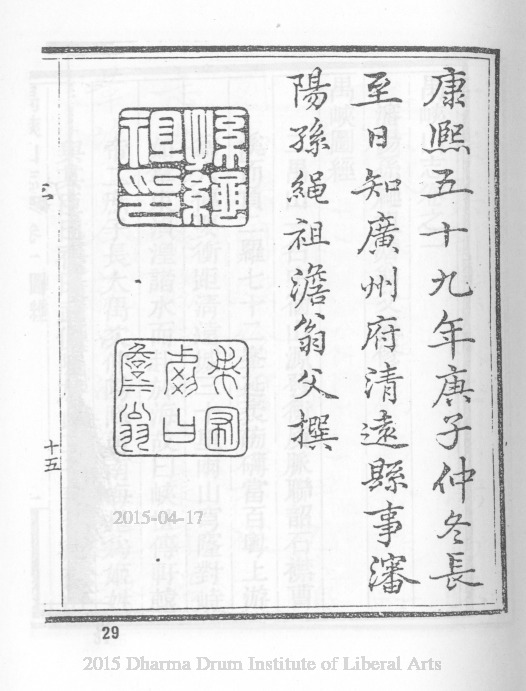 康熙五十九年庚子仲冬長
至日知廣州府清遠縣事瀋
陽孫繩祖澹翁父撰
孫繩
祖印
十五
2015-04-17
29
2015 Dharma Drum Institute of Liberal Arts